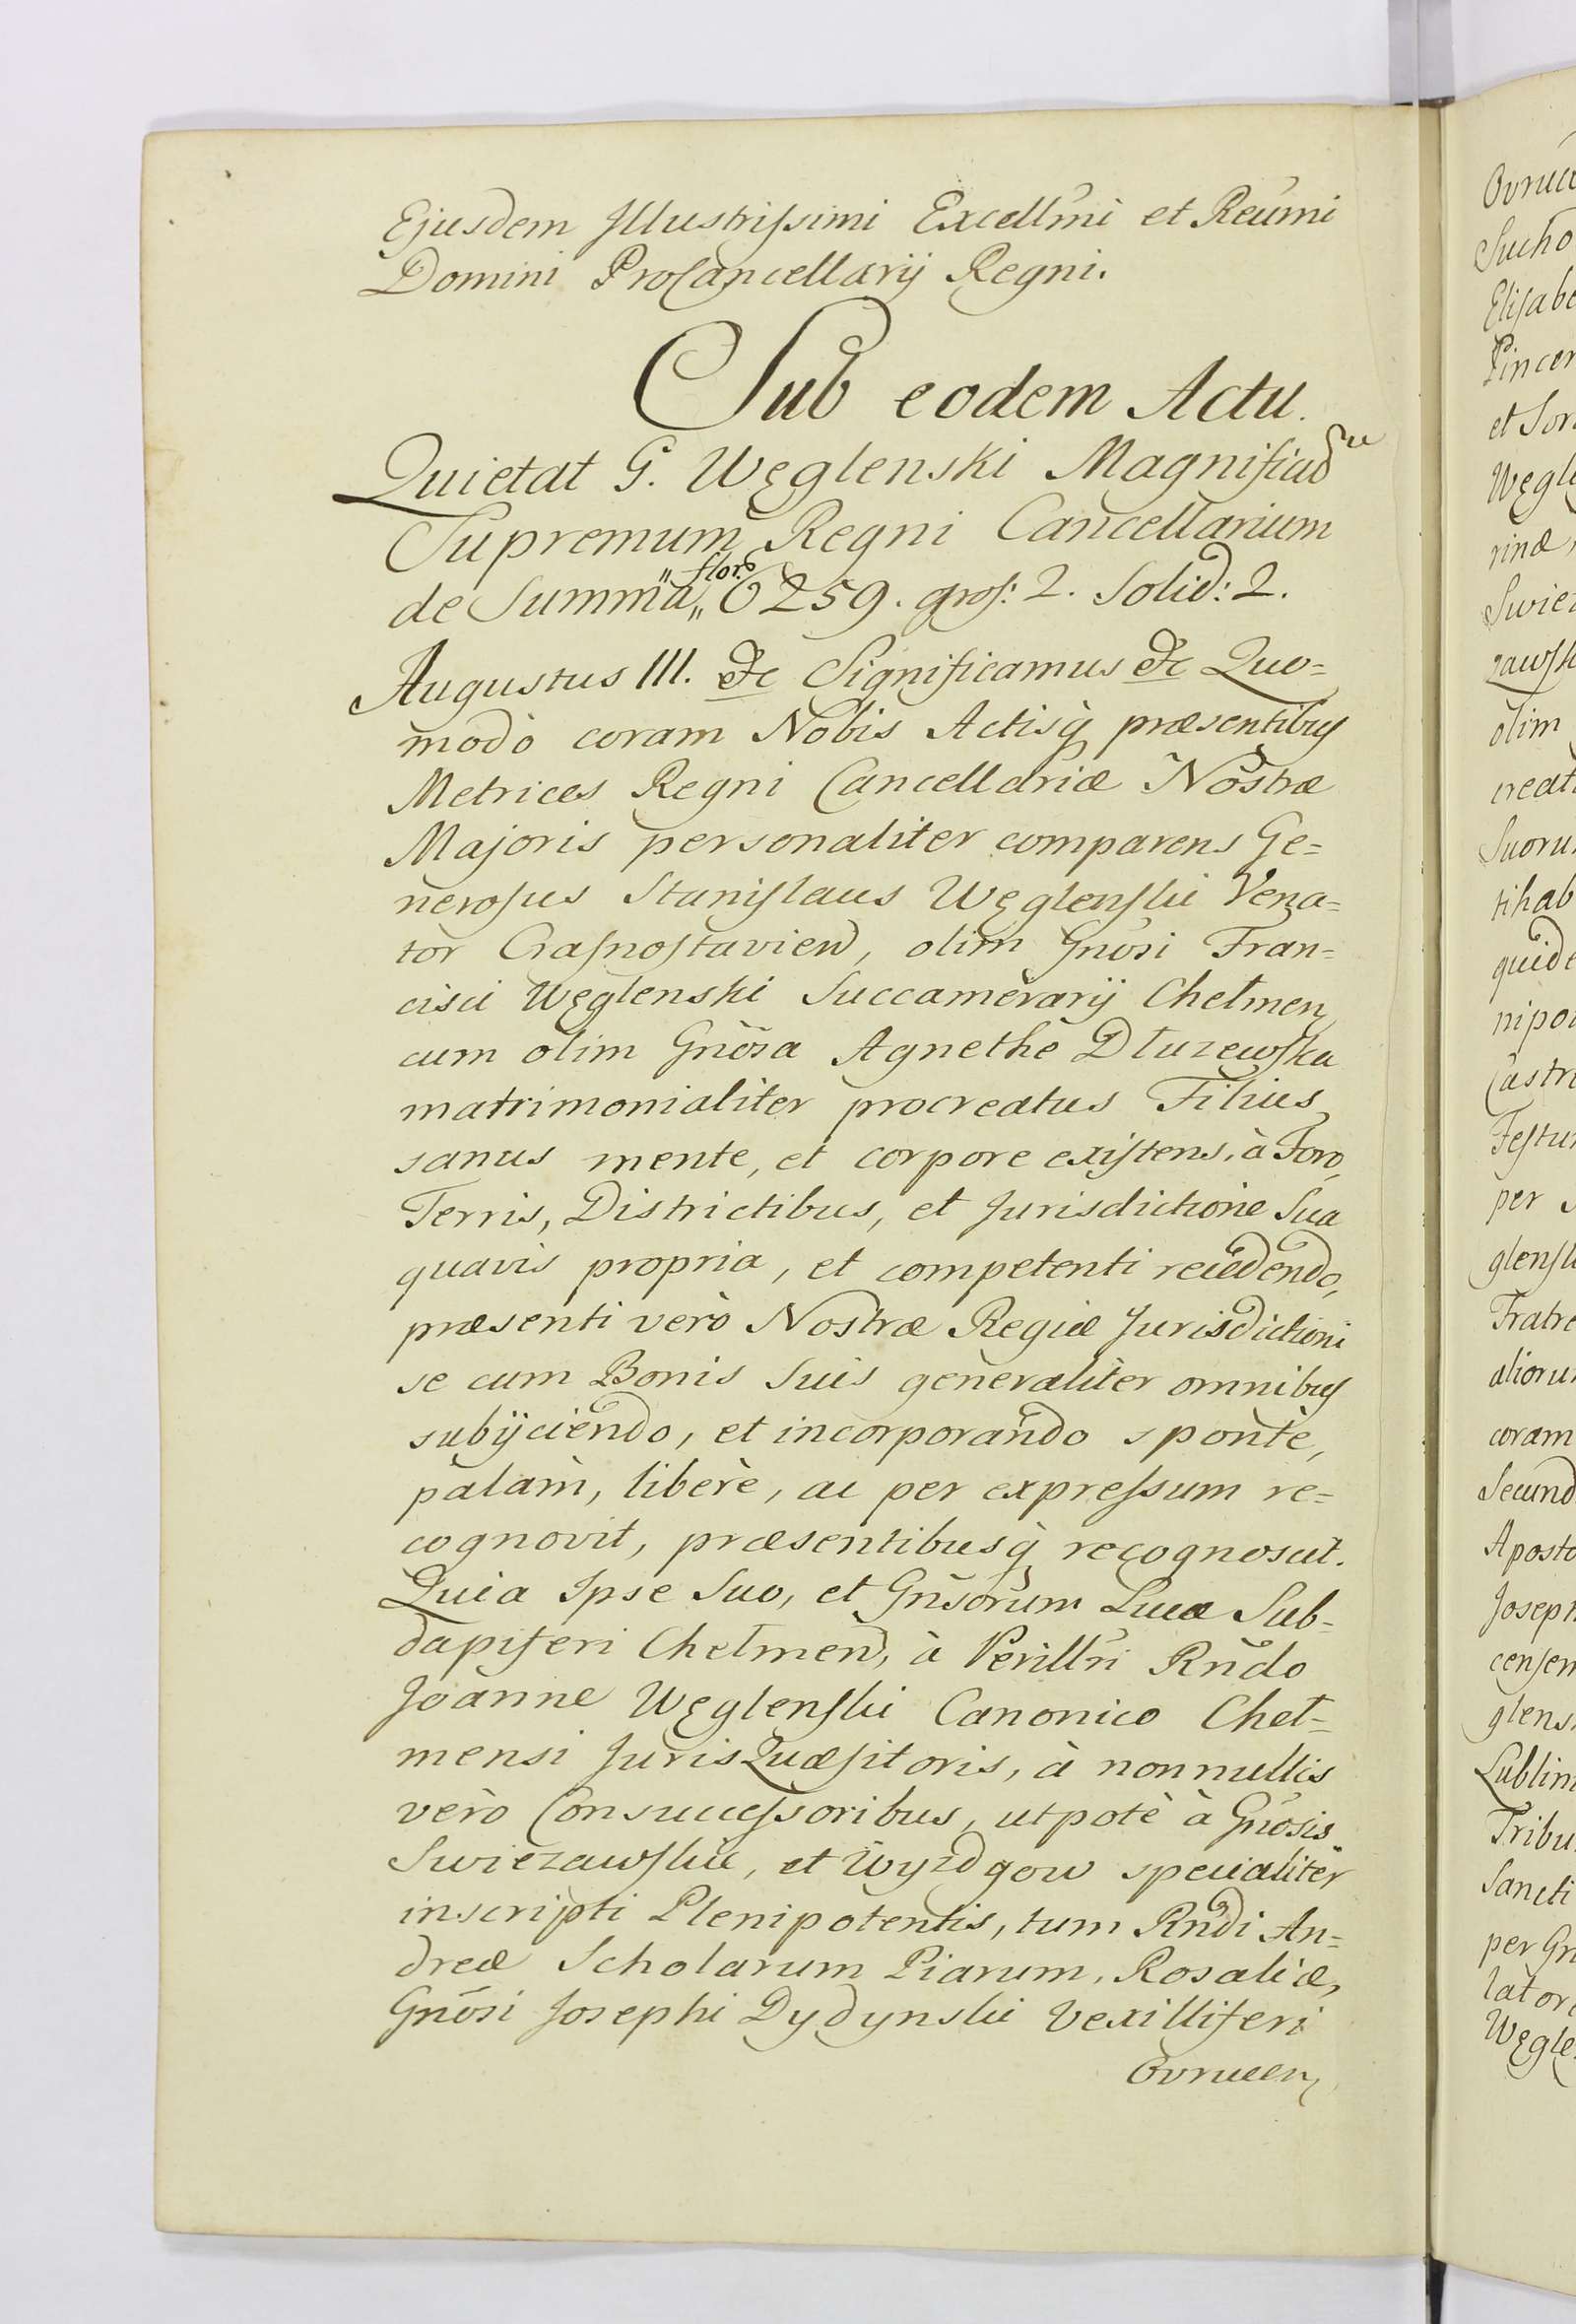 Ejusdem Illustrissimi Excellm̃i et Reũmi
Domini ProCancellarij Regni.
Sub eodem Actu.
Quietat G. Węglenski Magnificũ
Supremum Regni Cancellarium
de Summa „ flor: 6259. gros: 2. Solid: 2.
Augustus III. &c Significamus &c Quo=
modò coram Nobis Actisq̀ præsentibus
Metrices Regni Cancellariæ Nostræ
Majoris personaliter comparens Ge=
nerosus Stanislaus Węglenski Vena=
tor Crasnostavien, olim Gnõsi Fran=
cisci Węglenski Succamerarij Chełmen,
cum olim Gnõsa Agnethe Dłuzewska
matrimonialiter procreatus Filius
sanus mente, et corpore existens, à Foro,
Terris, Districtibus, et Jurisdictione Sua
quavis propria, et competenti recedendo,
præsenti verò Nostræ Regiæ Jurisdictioni
se cum Bonis Suis generaliter omnibus
subijciendo, et incorporando sponte,
palàm, liberè, ac per expressum re=
cognovit, præsentibusq̀ recognoscit.
Quia Ipse Suo, et Gñsorum Lucæ Sub=
dapiferi Chełmen, à Perillr̃i Rñdo
Joanne Węglenski Canonico Cheł=
mensi Juris Quæsitoris, à nonnullis
verò Consuccessoribus, utpotè à Gnõsis
Swiezawskie, et Wyzdgow specialiter
inscripti Plenipotentis, tum Rñdi An=
dreæ Scholarum Piarum, Rosaliæ,
Gnõsi Josephi Dydynski Vexilliferi
Ovrucen,
Sucho
et Sor
Węgl
rinæ
olim
creat
Suoru
tihab
quide
nipo
Castr
Festu
per
glensk
Fratr
aliorum
coram
Secund
Aposto
Joseph
censem
glens
Lublin
Tribu
Sancti
per Gn
lator
Węgle